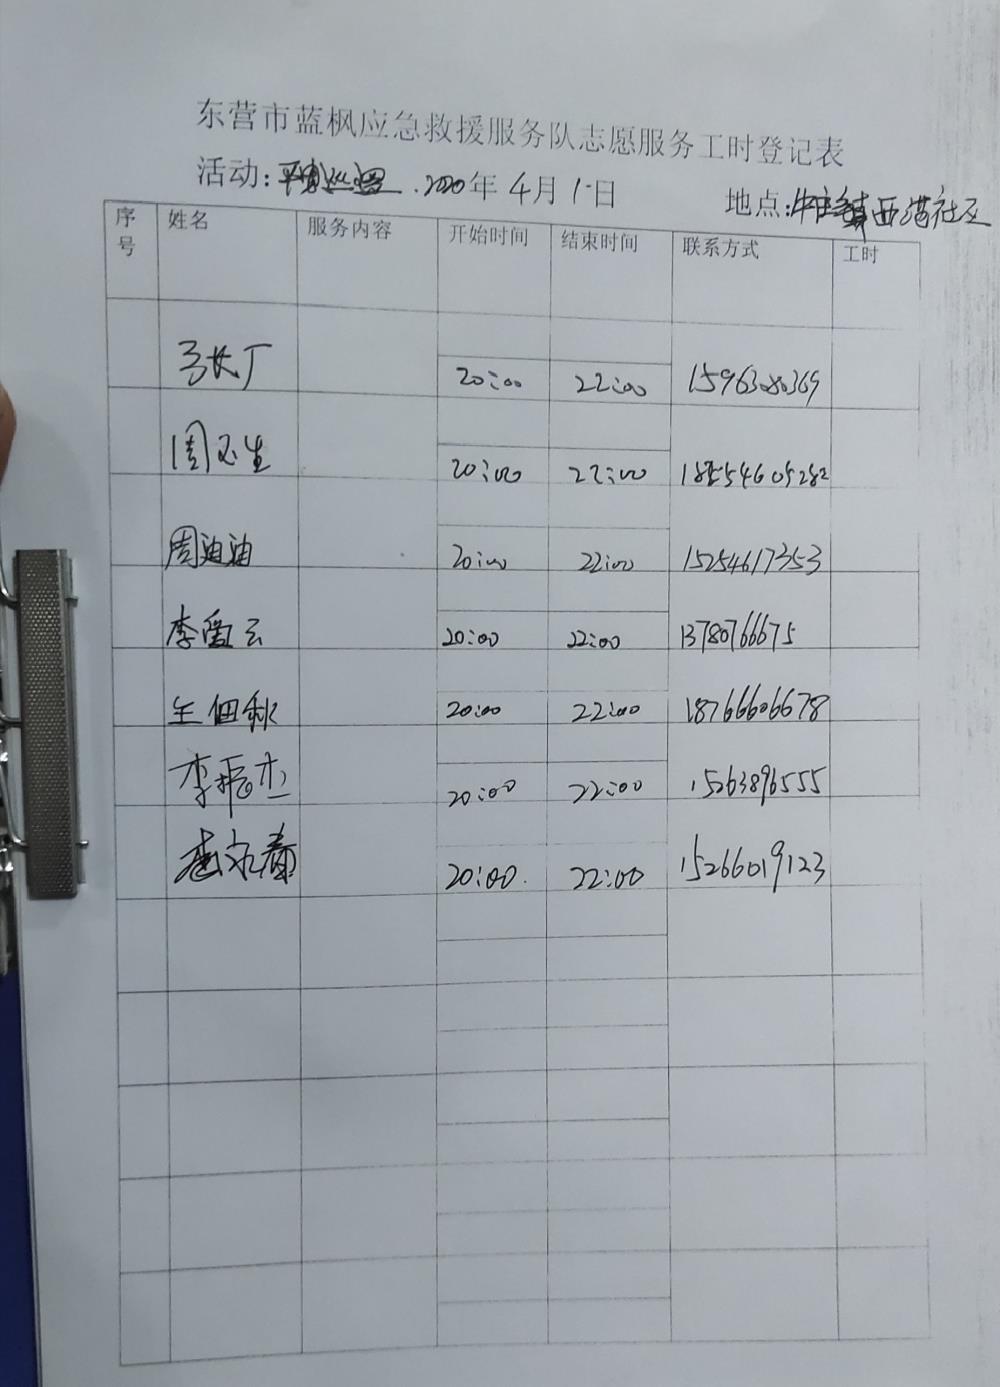 东营市蓝枫应急救援服务队志愿服务工时登记表
活动: 2020年4月1日 地点: 西范社区
序号 姓名 服务内容 开始时间 结束时间 联系方式 工时
20:00 22:00
周 生 20:00 22:00
周迪迪 20:00 22:00 15254617353
李爱云 20:00 22:00 13780766675
王 秋 20:00 22:00 18766606678
李振杰 20:00 22:00 15263896555
永春 20:00 22:00 15266019123